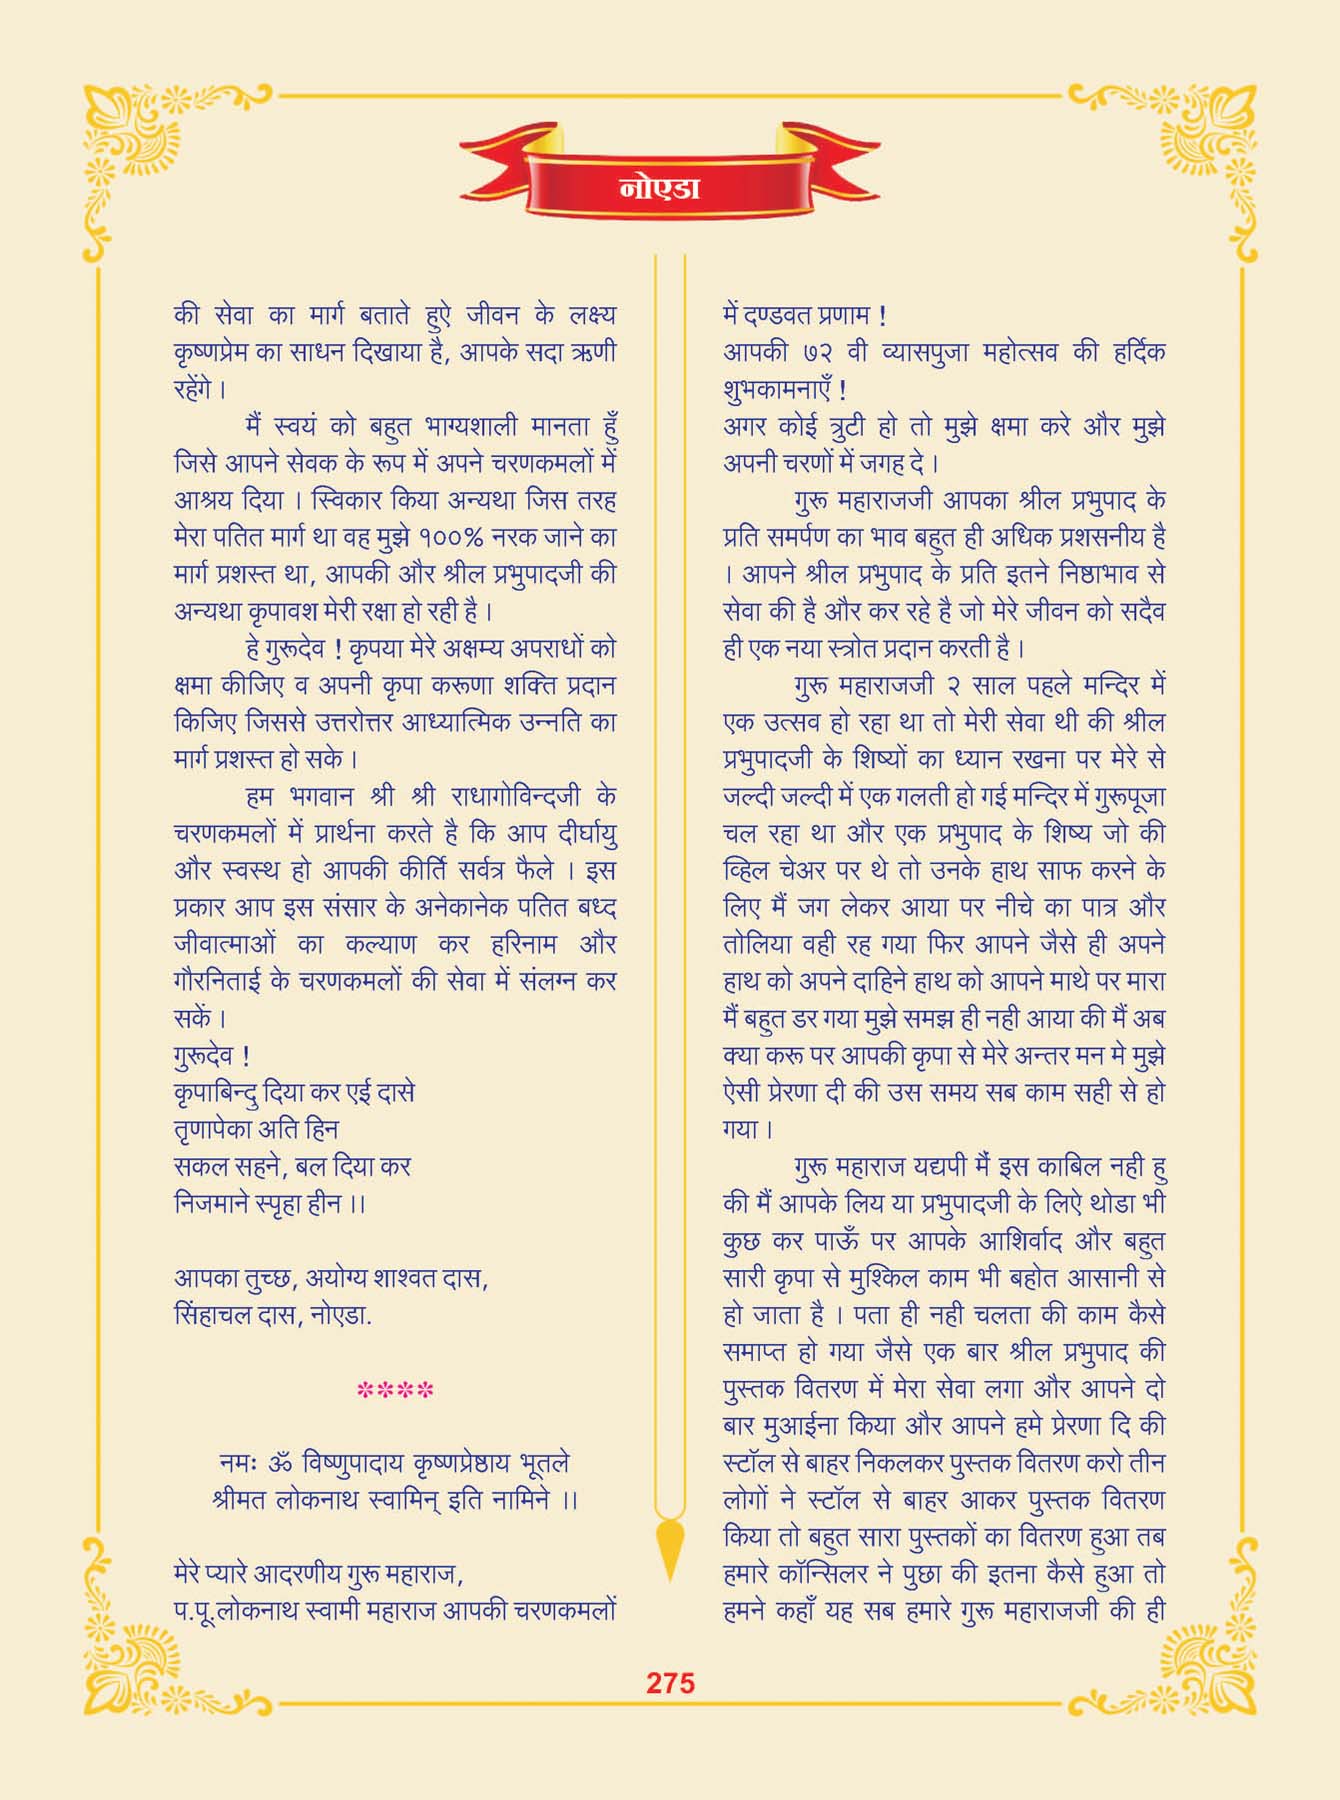 नोएडा
की सेवा का मार्ग बताते हुऐ जीवन के लक्ष्य
कृष्णप्रेम का साधन दिखाया है, आपके सदा ऋणी
रहेंगे ।
मैं स्वयं को बहुत भाग्यशाली मानता हूँ
जिसे आपने सेवक के रूप में अपने चरणकमलों में
आश्रय दिया । स्विकार किया अन्यथा जिस तरह
मेरा पतित मार्ग था वह मुझे १००% नरक जाने का
मार्ग प्रशस्त था, आपकी और श्रील प्रभुपादजी की
अन्यथा कृपावश मेरी रक्षा हो रही है ।
हे गुरूदेव ! कृपया मेरे अक्षम्य अपराधों को
क्षमा कीजिए व अपनी कृपा करूणा शक्ति प्रदान
किजिए जिससे उत्तरोत्तर आध्यात्मिक उन्नति का
मार्ग प्रशस्त हो सके ।
हम भगवान श्री श्री राधागोविन्दजी के
चरणकमलों में प्रार्थना करते है कि आप दीर्घायु
और स्वस्थ हो आपकी कीर्ति सर्वत्र फैले । इस
प्रकार आप इस संसार के अनेकानेक पतित बध्द
जीवात्माओं का कल्याण कर हरिनाम और
गौरनिताई के चरणकमलों की सेवा में संलग्न कर
सकें ।
गुरूदेव !
कृपाबिन्दु दिया कर एई दासे
तृणापेका अति हिन
सकल सहने, बल दिया कर
निजमाने स्पृहा हीन ।।
आपका तुच्छ, अयोग्य शाश्वत दास,
सिंहाचल दास, नोएडा.
****
नमः ॐ विष्णुपादाय कृष्णप्रेष्ठाय भूतले
श्रीमत लोकनाथ स्वामिन् इति नामिने ।।
मेरे प्यारे आदरणीय गुरू महाराज,
प.पू.लोकनाथ स्वामी महाराज आपकी चरणकमलों
में दण्डवत प्रणाम !
आपकी ७२ वी व्यासपुजा महोत्सव की हर्दिक
शुभकामनाएँ !
अगर कोई त्रुटी हो तो मुझे क्षमा करे और मुझे
अपनी चरणों में जगह दे ।
गुरू महाराजजी आपका श्रील प्रभुपाद के
प्रति समर्पण का भाव बहुत ही अधिक प्रशसनीय है
। आपने श्रील प्रभुपाद के प्रति इतने निष्ठाभाव से
सेवा की है और कर रहे है जो मेरे जीवन को सदैव
ही एक नया स्त्रोत प्रदान करती है ।
गुरू महाराजजी २ साल पहले मन्दिर में
एक उत्सव हो रहा था तो मेरी सेवा थी की श्रील
प्रभुपादजी के शिष्यों का ध्यान रखना पर मेरे से
जल्दी जल्दी में एक गलती हो गई मन्दिर में गुरूपूजा
चल रहा था और एक प्रभुपाद के शिष्य जो की
व्हिल चेअर पर थे तो उनके हाथ साफ करने के
लिए मैं जग लेकर आया पर नीचे का पात्र और
तोलिया वही रह गया फिर आपने जैसे ही अपने
हाथ को अपने दाहिने हाथ को आपने माथे पर मारा
मैं बहुत डर गया मुझे समझ ही नही आया की मैं अब
क्या करू पर आपकी कृपा से मेरे अन्तर मन मे मुझे
ऐसी प्रेरणा दी की उस समय सब काम सही से हो
गया ।
गुरू महाराज यद्यपी मैं इस काबिल नही हु
की मैं आपके लिय या प्रभुपादजी के लिऐ थोडा भी
कुछ कर पाऊँ पर आपके आशिर्वाद और बहुत
सारी कृपा से मुश्किल काम भी बहोत आसानी से
हो जाता है । पता ही नही चलता की काम कैसे
समाप्त हो गया जैसे एक बार श्रील प्रभुपाद की
पुस्तक वितरण में मेरा सेवा लगा और आपने दो
बार मुआईना किया और आपने हमे प्रेरणा दि की
स्टॉल से बाहर निकलकर पुस्तक वितरण करो तीन
लोगों ने स्टॉल से बाहर आकर पुस्तक वितरण
किया तो बहुत सारा पुस्तकों का वितरण हुआ तब
हमारे कॉन्सिलर ने पुछा की इतना कैसे हुआ तो
हमने कहाँ यह सब हमारे गुरू महाराजजी की ही
275